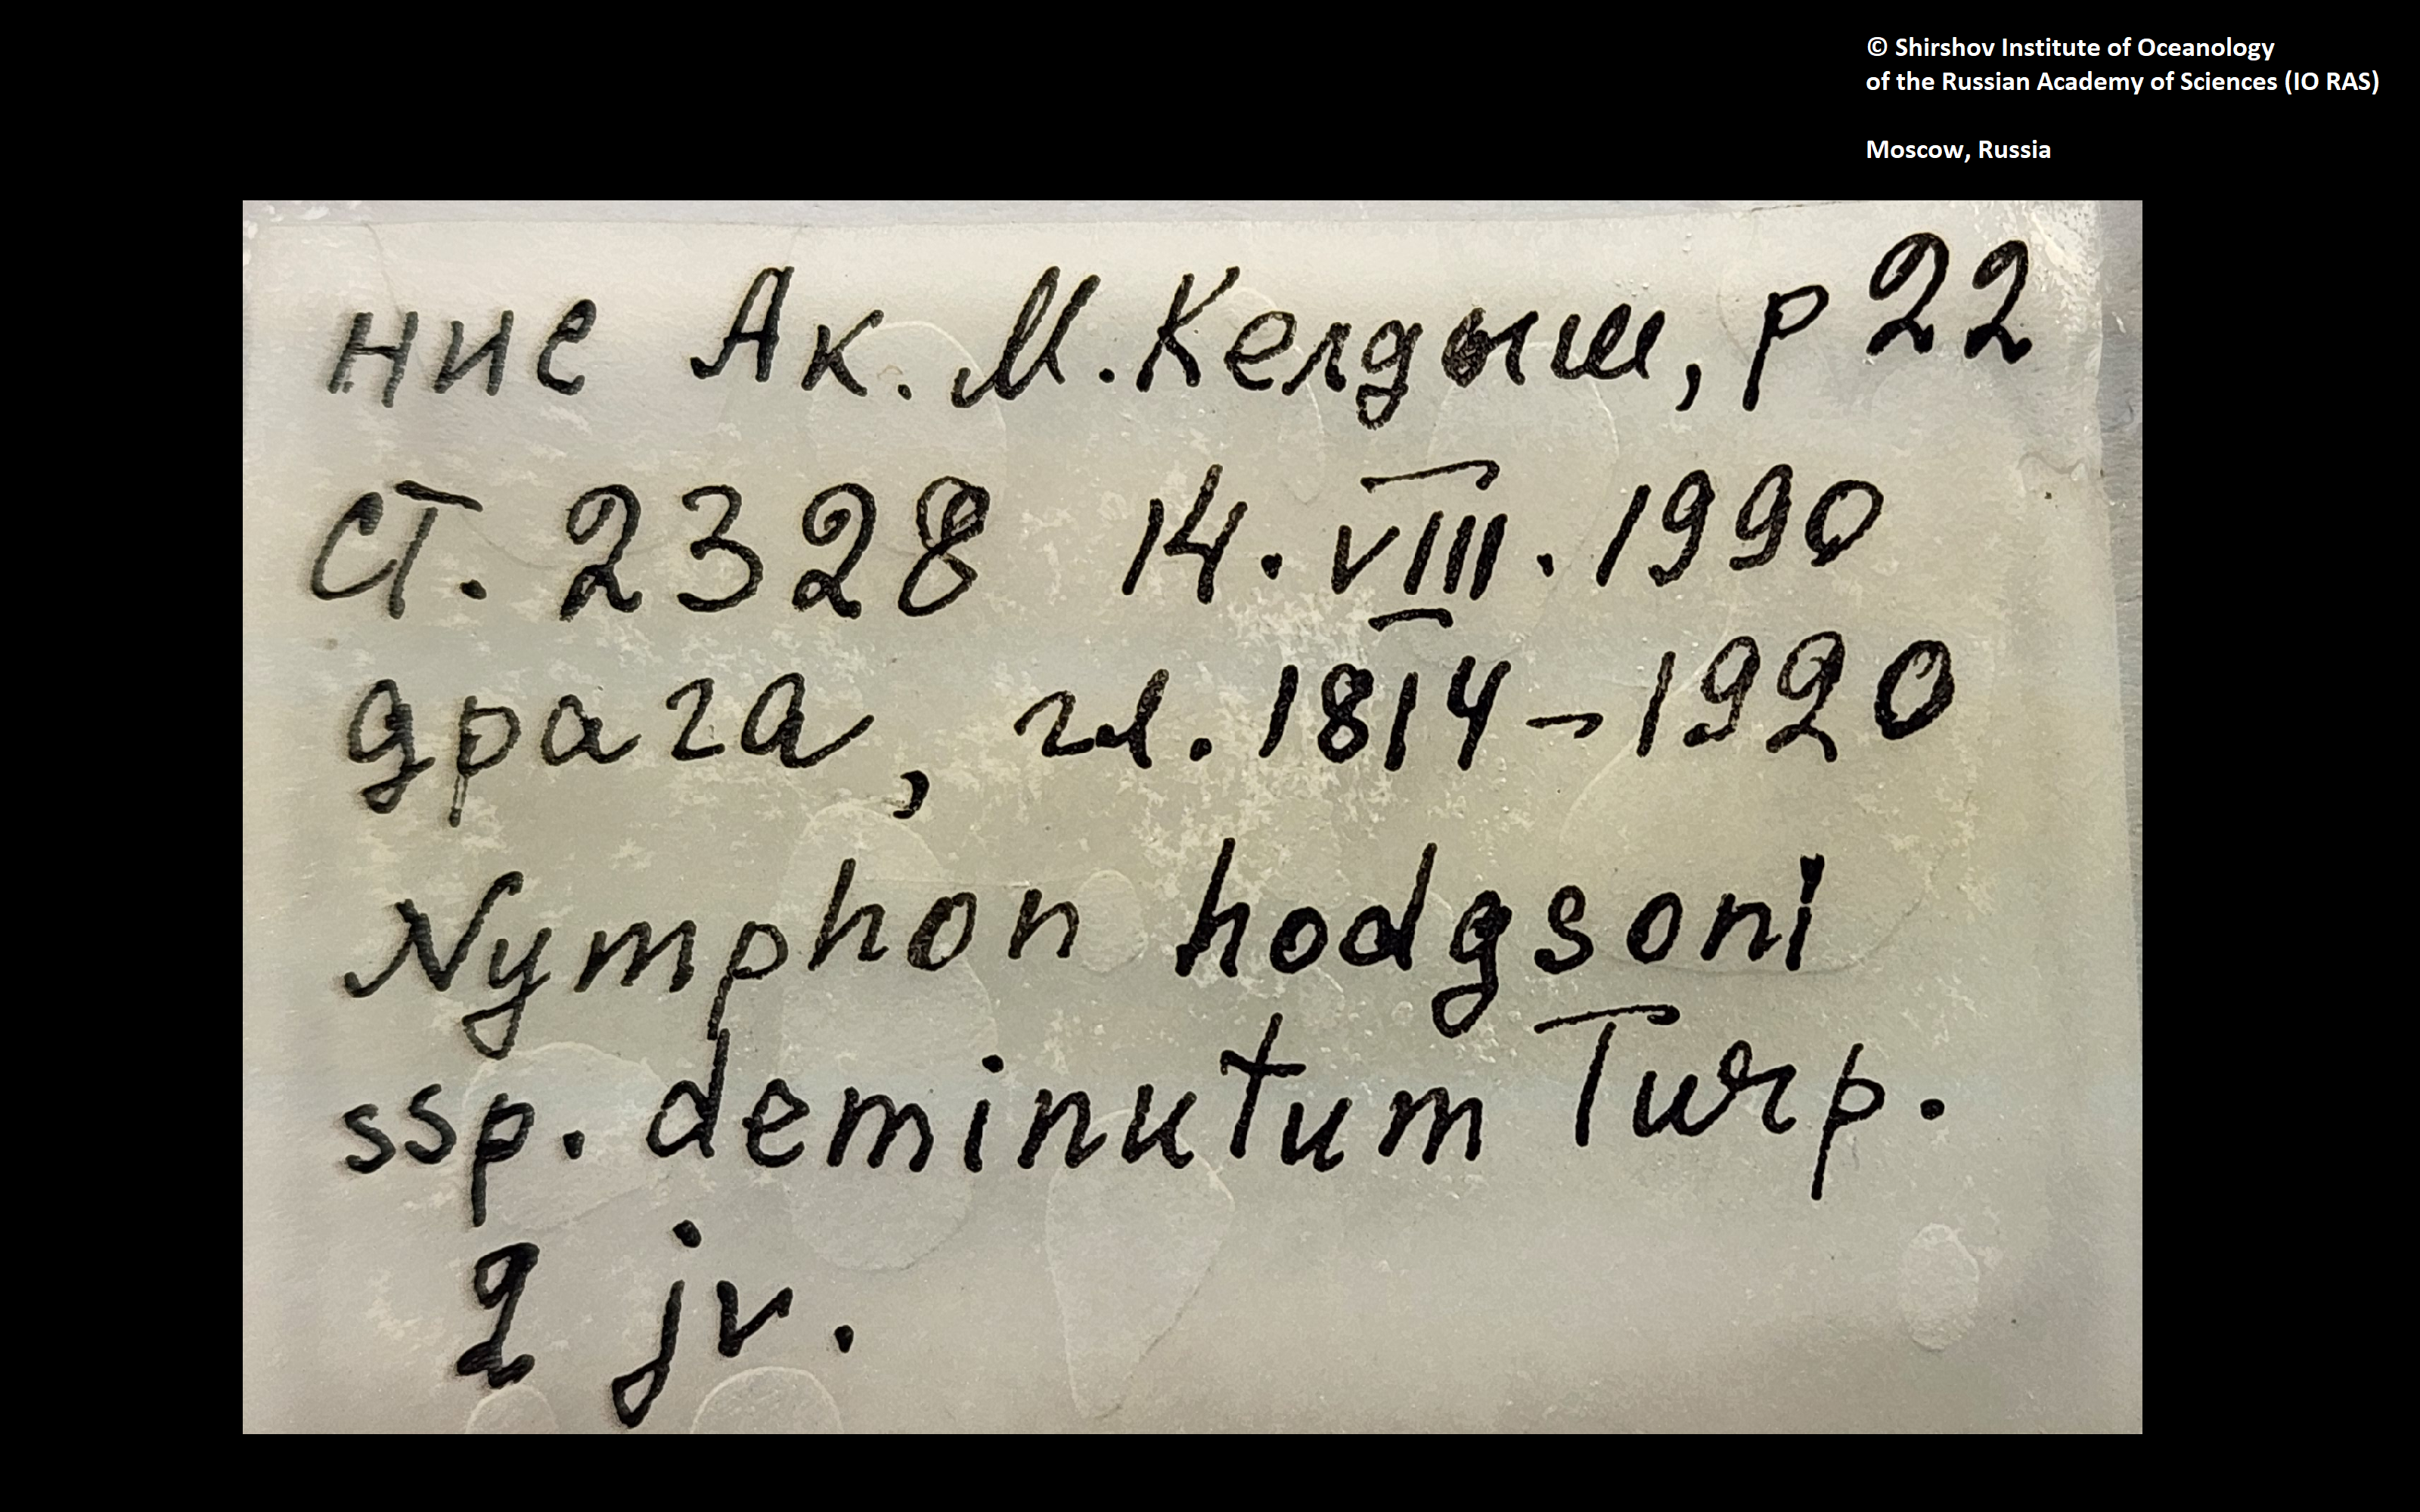 © Shirshov Institute of Oceanology
of the Russian Academy of Sciences (IO RAS)
Moscow, Russia
нис Ак. М. Келдыш, р 22
ст. 2328 14. VIII. 1990
драга, гл. 1814-1920
Nymphon hodgsoni
ssp. deminutum Turp.
2 jv.